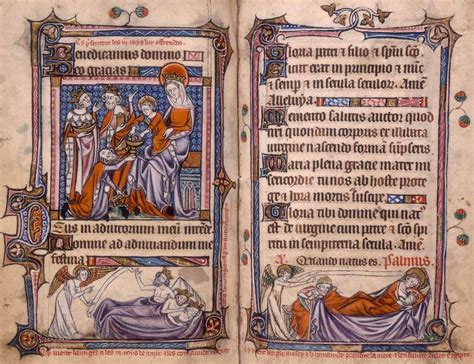 Benedicamus domino
Deo gracias
Deus in adiutorium meū intende
Domine ad adiuuandum me
festina
Gloria patri et filio et spūi scō
Sicut erat in principio et nūc
et semp et in secula seculor. Amē
Alleluya
Memento salutis auctor quod
nostri quondam corporis ex illibata
uirgine nascendo formam sūpseris
Maria plena gracie mater mi
sericordie tu nos ab hoste prote
ge hora mortis suscipe
Gloria tibi domine qui nat
es de uirgine cum patre et sco
spū in sempiterna secula. Amē
A. Quando natus es. Psalmus.